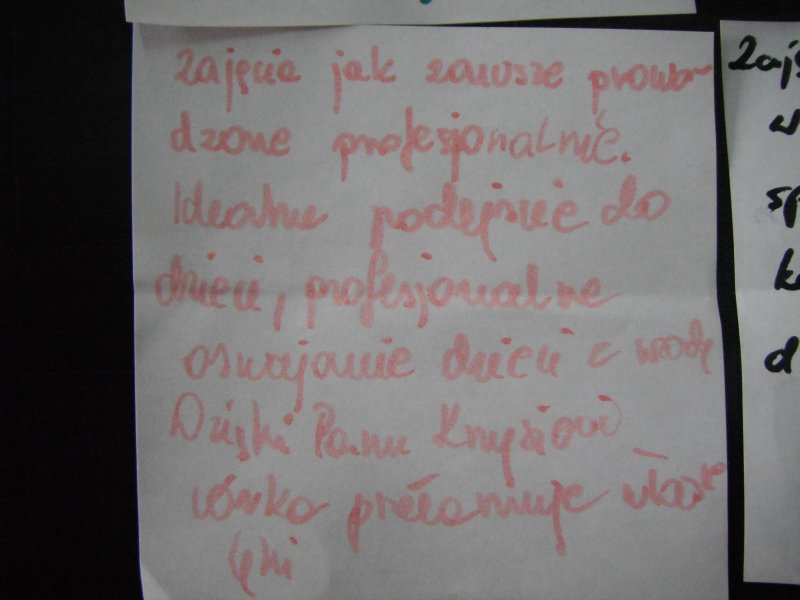 Zajęcia jak zawsze prowa-
dzone profesjonalnie.
Idealne podejście do
dzieci, profesjonalne
oswajanie dzieci z wodą
Dzięki Panu Krzysiowi
córka przełamuje własne
lęki
Zaj
w
sp
k
d